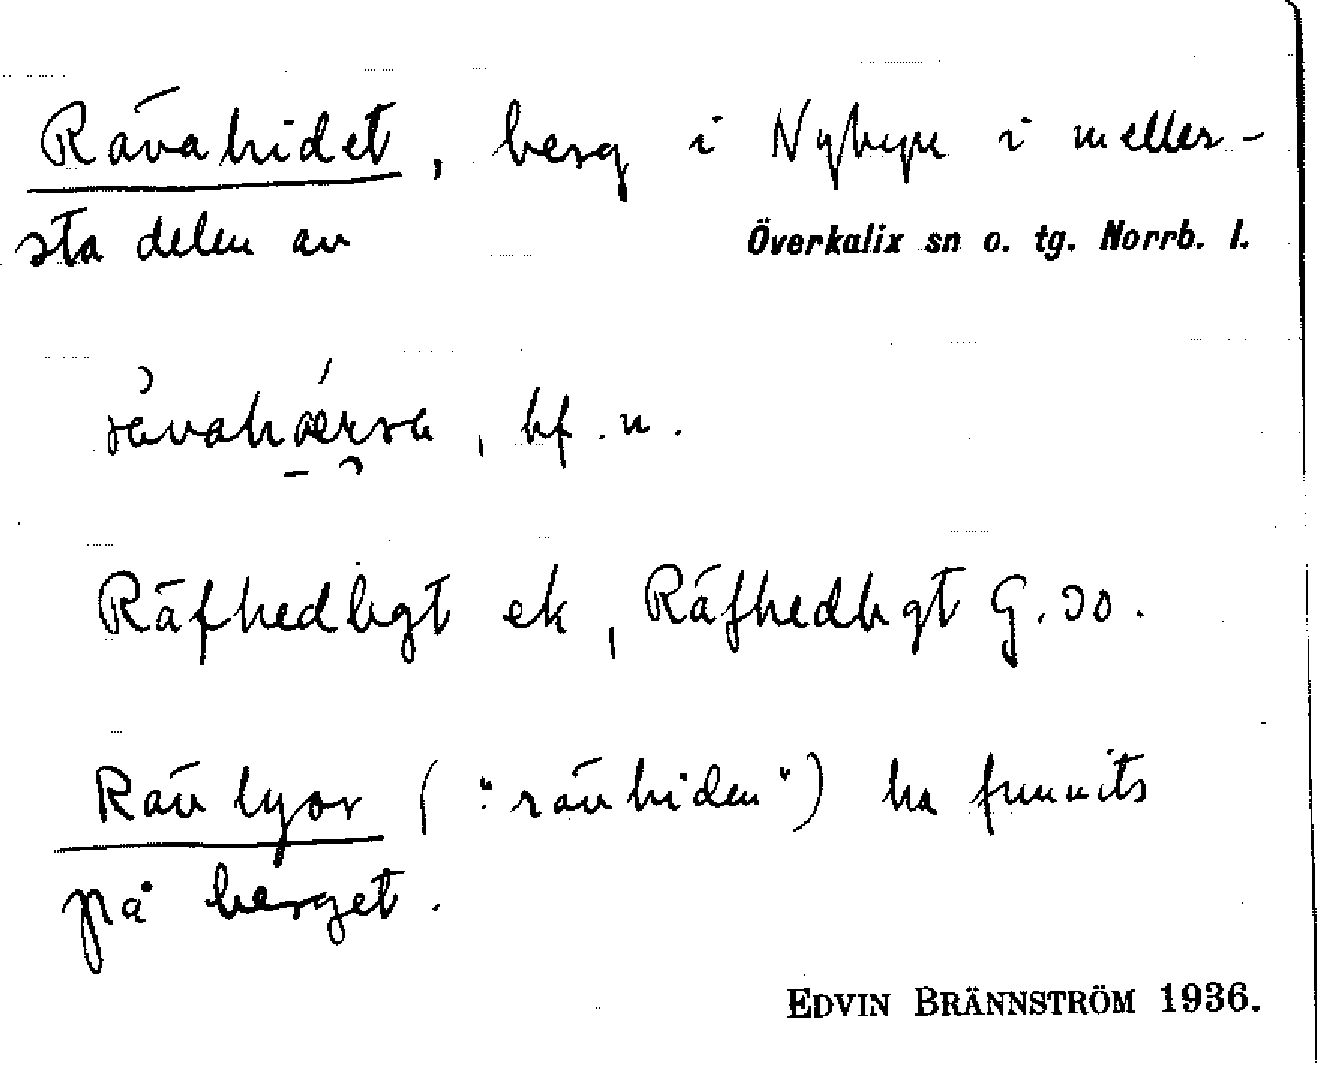 Rävahidet, berg i Nybyn i meller-
sta delen av Överkalix sn o. tg. Norrb. l.
, bf. n.
Räfhedbgt ek, Räfhedbgt G. 30.
Rävlyor ("rävhiden") ha funnits
på berget.
EDVIN BRÄNNSTRÖM 1936.